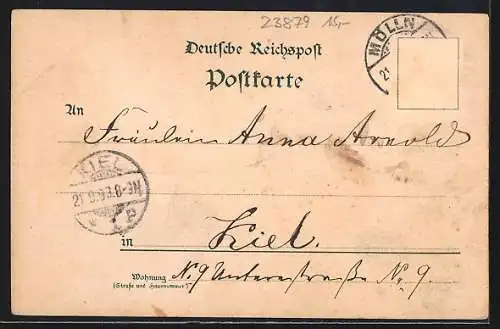 23879 15,-
Deutsche Reichspost
Postkarte
MÖLLN
21
An
Fräulein Anna Arnold
KIEL
21.9.99.8-9N
in
Kiel.
Wohnung
(Straße und Hausnummer)
N. 9 Unterestraße No 9.